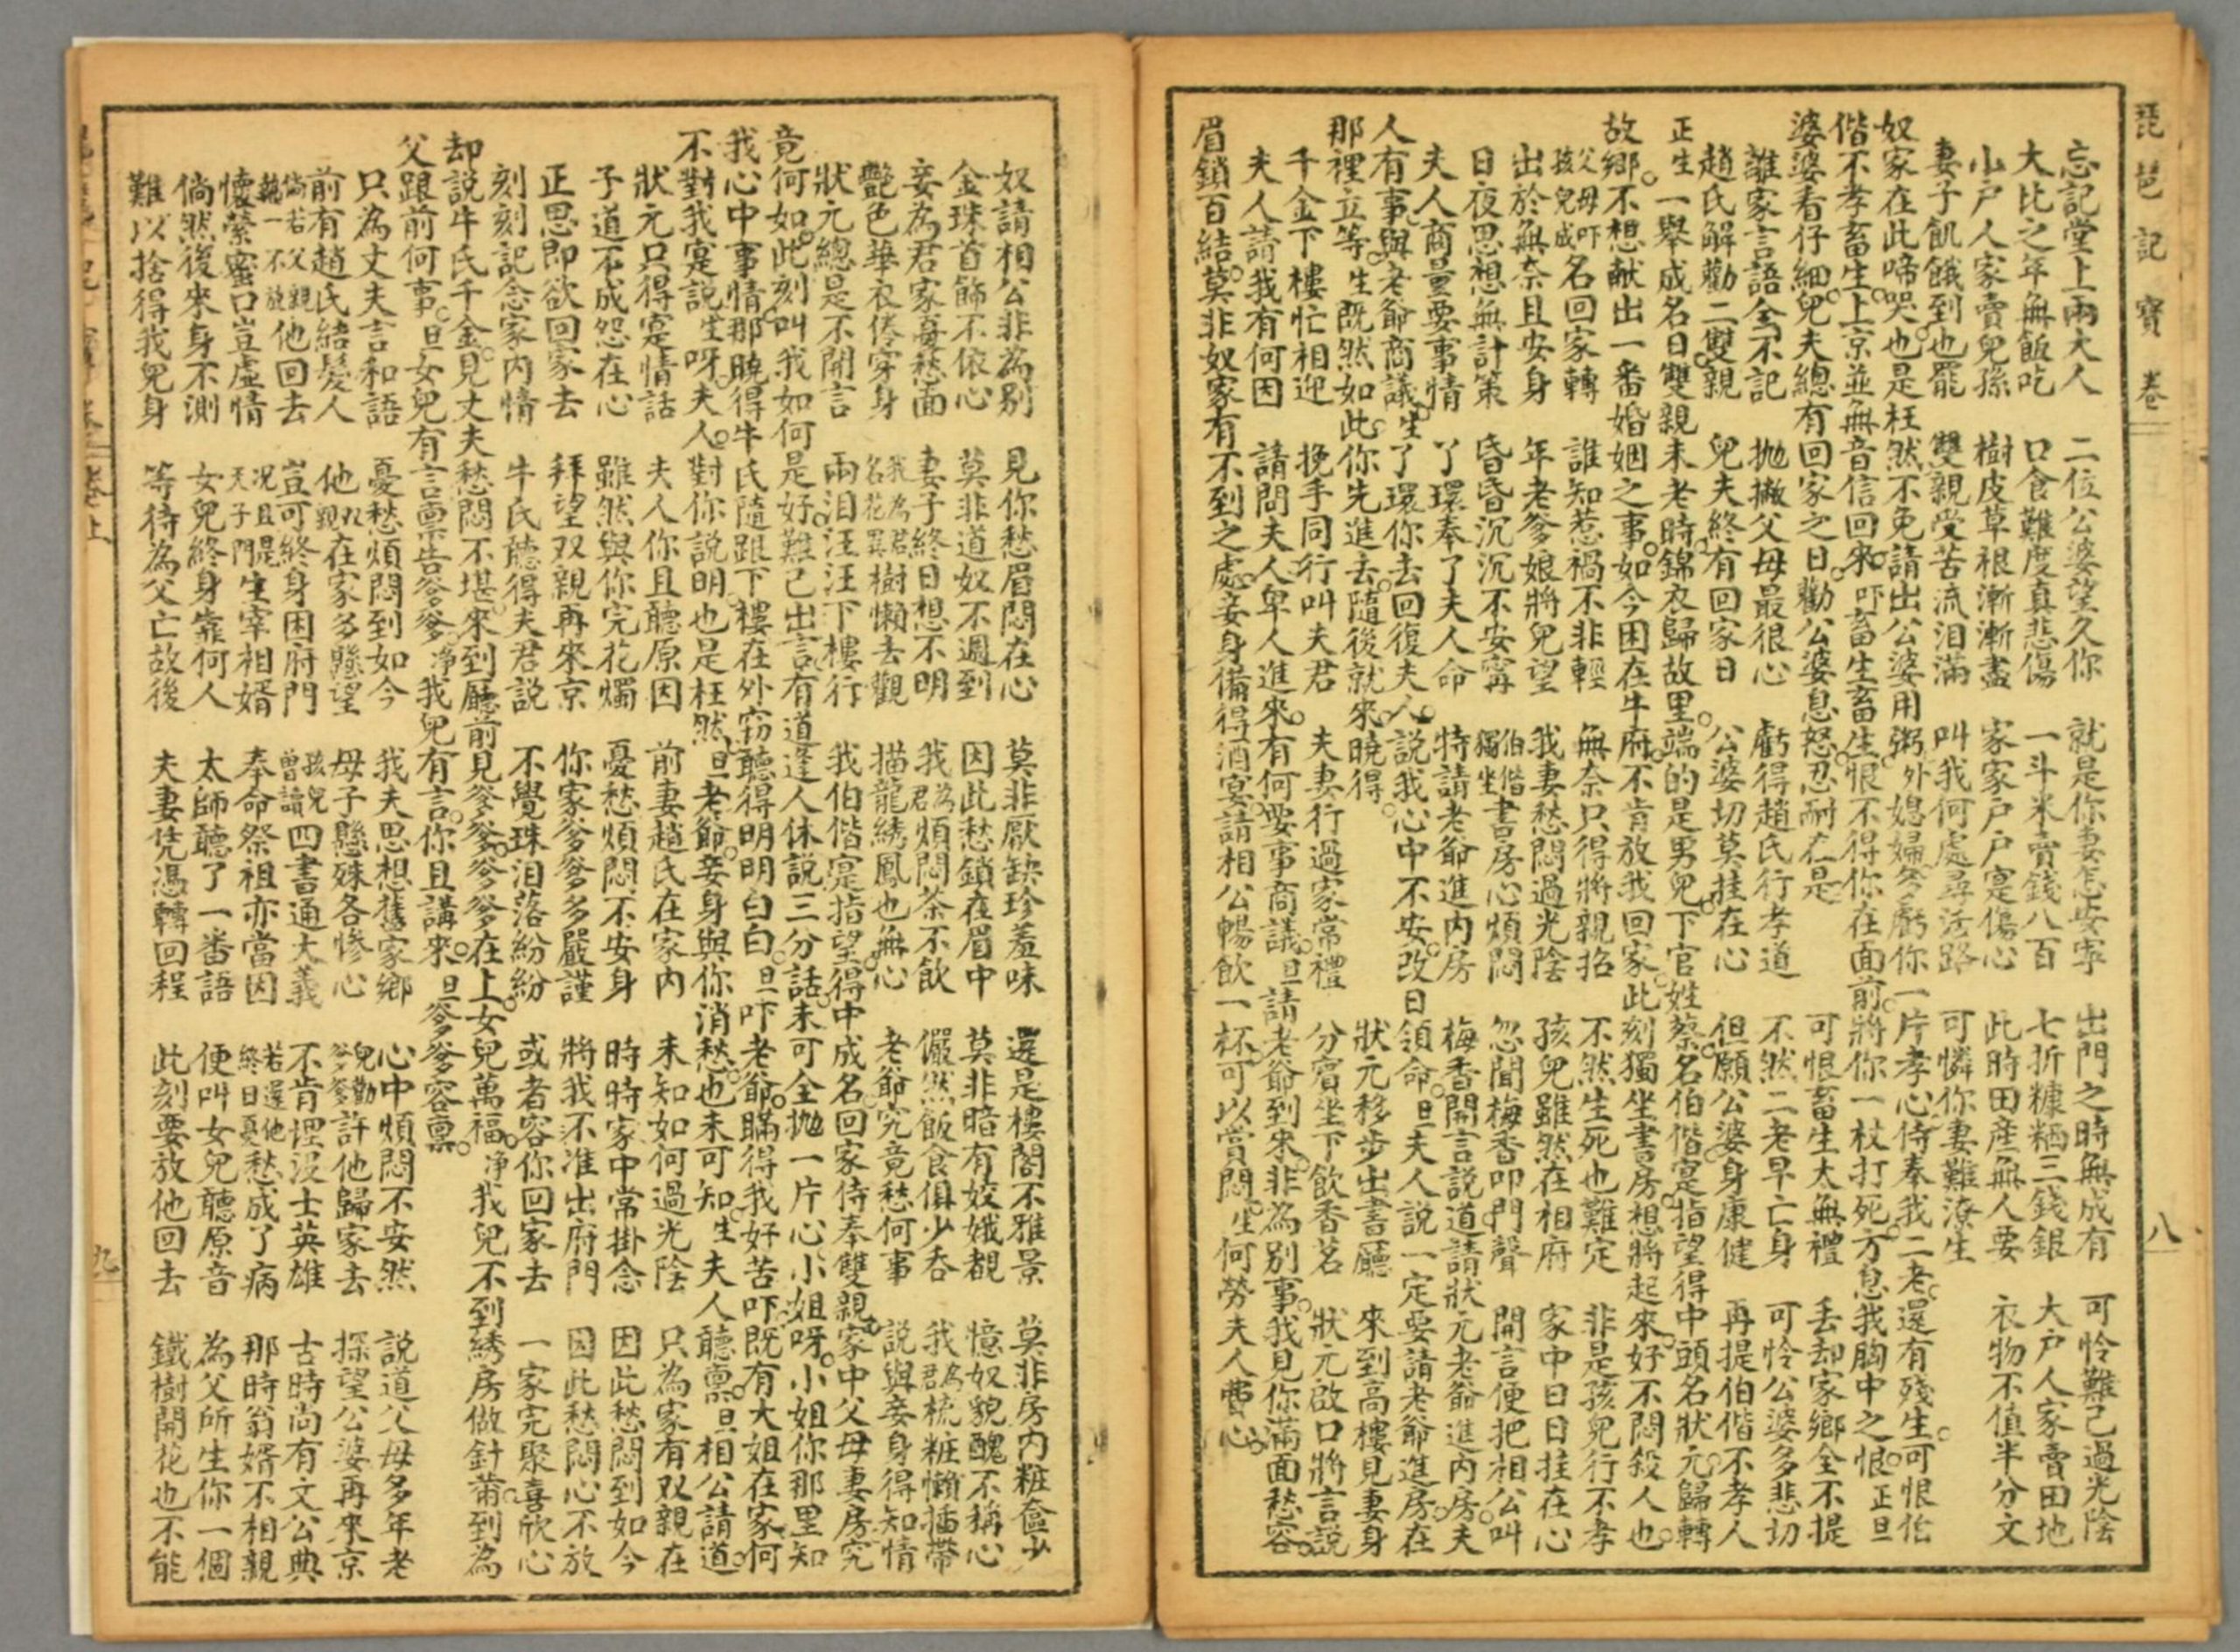 琵琶記寳卷
八
忘記堂上兩大人 二位公婆望久你 就是你妻怎安寧 出門之時無成有 可怜難已過光陰
大比之年無飯吃 口食難度真悲傷 一斗米賣錢八百 七折糠粞三錢銀 大户人家賣田地
小户人家賣兒孫 樹皮草根漸漸盡 家家户户寔傷心 此時田産無人要 衣物不值半分文
妻子飢餓到也罷 雙親受苦流泪滿 叫我何處尋活路 可憐你妻難潦生
奴家在此啼哭。也是枉然不免請出公婆用粥。外媳婦多虧你一片孝心侍奉我二老。還有殘生。可恨伯
偕不孝畜生。上京並無音信回來。吓畜生畜生。恨不得你在面前。將你一杖打死。方息我胸中之恨。正旦
婆婆看仔細。兒夫總有回家之日。勸公婆息怒忍耐在是 可恨畜生太無禮 丢却家鄉全不提
離家言語全不記 抛撇父母最很心 虧得趙氏行孝道 不然二老早亡身 可怜公婆多悲切
趙氏解勸二雙親 兒夫終有回家日 公婆切莫挂在心 但願公婆身康健 再提伯偕不孝人
正生一舉成名日。雙親未老時。錦衣歸故里。端的是男兒。下官姓蔡。名伯偕。寔指望得中頭名狀元。歸轉
故鄉。不想献出一番婚姻之事。如今困在牛府。不肯放我回家。此刻獨坐書房。想將起來。好不悶殺人也。
父母吓孩兒成名回家轉 誰知惹禍不非輕 無奈只得將親招 不然生死也難定 非是孩兒行不孝
出於無奈且安身 年老爹娘將兒望 我妻愁悶過光陰 孩兒雖然在相府 家中日日挂在心
日夜思想無計策 昏昏沉沉不安寧 伯偕獨坐書房心煩悶 忽聞梅香叩門聲 開言便把相公叫
夫人商量要事情 丫環奉了夫人命 特請老爺進内房 梅香開言説道請狀元老爺進内房。夫
人有事與老爺商議。生了環你去回復夫人。説我心中不安。改日領命。旦夫人説一定要請老爺進房。在
那裡立等。生既然如此。你先進去。隨後就來。曉得。 狀元移步出書廳 來到高樓見妻身
千金下樓忙相迎 挽手同行叫夫君 夫妻行過家常禮 分賓坐下飲香茗 狀元啟口將言説
夫人請我有何因 請問夫人卑人進來。有何要事商議。旦請老爺到來。非為别事。我見你滿面愁容。
眉鎖百結。莫非奴家有不到之處。妾身備得酒宴。請相公暢飲一杯。可以賞悶。生何勞夫人費心。
奴請相公非為别 見你愁眉悶在心 莫非厭缺珍羞味 還是樓閣不雅景 莫非房内粧奩少
金珠首飾不依心 莫非道奴不週到 因此愁鎖在眉中 莫非暗有姣娥覩 憶奴貌醜不稱心
妾為君家憂愁面 妻子終日想不明 我為君煩悶茶不飲 儼然飯食俱少吞 我為君梳粧懶插帶
艷色華衣倦穿身 我為君名花異樹懶去觀 描龍綉鳳也無心 老爺究竟愁何事 説與妾身得知情
狀元總是不開言 兩泪汪汪下樓行 我伯偕寔指望得中成名回家侍奉雙親。家中父母妻房究
竟何如。此刻叫我如何是好。難已出言。有道逢人休説三分話。未可全抛一片心。小姐呀。小姐你那里知
我心中事情。那曉得牛氏隨跟下樓。在外窃聽得明明白白。旦吓老爺。瞞得我好苦吓。既有大姐在家。何
不對我寔説。生呀。夫人。對你説明也是枉然。旦老爺。妾身與你消愁。也未可知。生夫人聽禀。旦相公請道。
狀元只得寔情話 夫人你且聽原因 前妻趙氏在家内 未知如何過光陰 只為家有双親在
子道不成怨在心 雖然與你完花燭 憂愁煩悶不安身 時時家中常掛念 因此愁悶到如今
正思即欲回家去 拜望双親再來京 你家爹爹多嚴謹 將我不准出府門 因此愁悶心不放
刻刻記念家内情 牛氏聽得夫君説 不覺珠泪落紛紛 或者容你回家去 一家完聚喜欣心
却説牛氏千金。見丈夫愁悶不堪。來到廳前見爹爹。爹爹在上。女兒萬福。净我兒不到綉房做針黹。到為
父跟前何事。旦女兒有言禀告爹爹。净我兒有言。你且講來。旦爹爹容禀。
只為丈夫言和語 憂愁煩悶到如今 我夫思想舊家鄉 心中煩悶不安然 説道父母多年老
前有趙氏結髮人 他双親在家多懸望 母子懸殊各慘心 兒勸爹爹許他歸家去 探望公婆再來京
倘若父親執一不放他回去 豈可終身困府門 孩兒曾讀四書通大義 不肯埋没士英雄 古時尚有文公典
懷縈蜜口豈虚情 况且是天子門生宰相婿 奉命祭祖亦當因 若還他終日憂愁成了病 那時翁婿不相親
倘然後來身不測 女兒終身靠何人 太師聽了一番語 便叫女兒聽原音 為父所生你一個
難以捨得我兒身 等待為父亡故後 夫妻凭憑轉回程 此刻要放他回去 鐵樹開花也不能
九